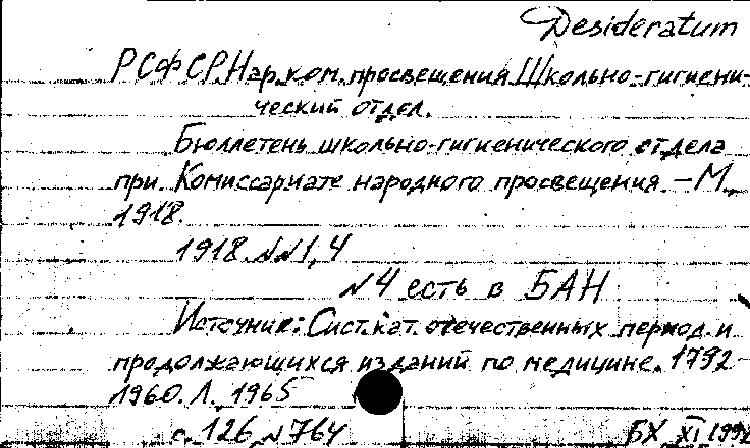 Desideratum
РСФСР. Нар. ком. просвещения. Школьно-гигиени-
ческий отдел.
Бюллетень школьно-гигиенического отдела
при Комиссариате народного просвещения. – М.,
1918.
1918. NN1, 4
N4 есть в БАН
Источник: Сист. кат. отечественных период. и
продолжающихся изданий по медицине. 1792-
1960. Л. 1965
с. 126, N764
БХ XI